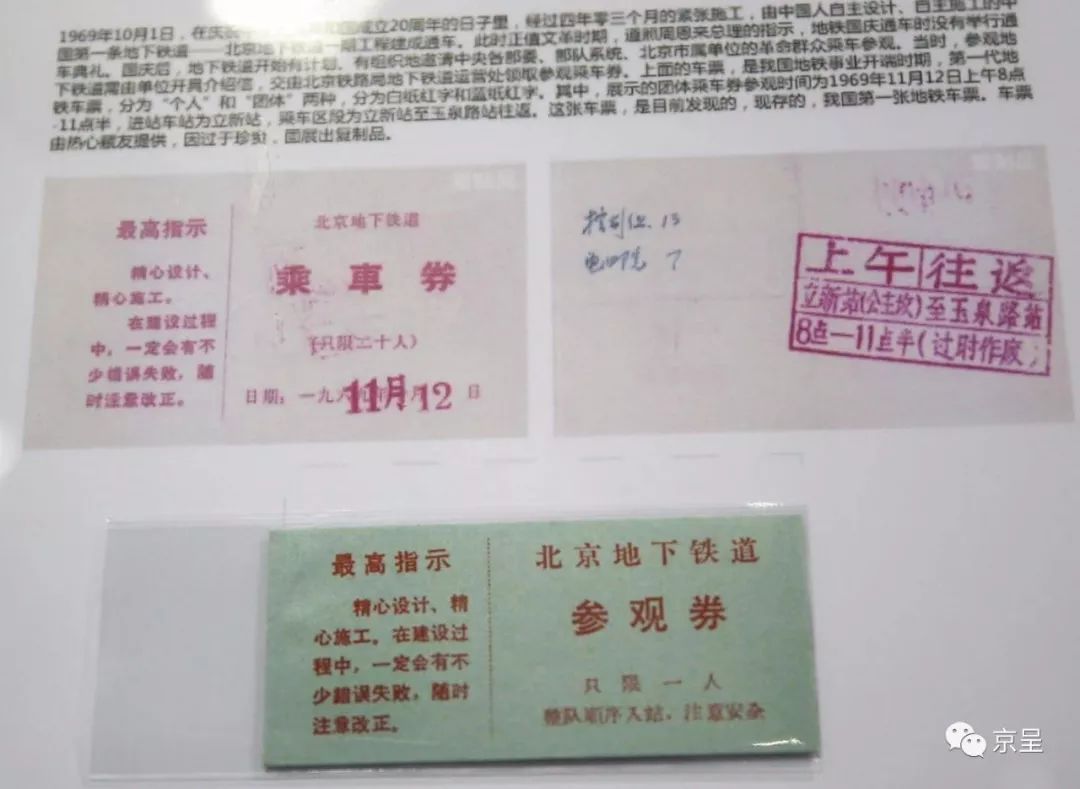 1969年10月1日，在庆祝 成立20周年的日子里，经过四年零三个月的紧张施工，由中国人自主设计、自主施工的中
国第一条地下铁道——北京地下铁道一期工程建成通车。此时正值文革时期，遵照周恩来总理的指示，地铁国庆通车时没有举行通
车典礼。国庆后，地下铁道开始有计划、有组织地邀请中央各部委、部队系统、北京市属单位的革命群众乘车参观。当时，参观地
下铁道需由单位开具介绍信，交由北京铁路局地下铁道运营处领取参观乘车券。上面的车票，是我国地铁事业开端时期，第一代地
铁车票，分为“个人”和“团体”两种，分为白纸红字和蓝纸红字。其中，展示的团体乘车券参观时间为1969年11月12日上午8点
-11点半，进站车站为立新站，乘车区段为立新站至玉泉路站往返。这张车票，是目前发现的，现存的，我国第一张地铁车票。车票
由热心藏友提供，因过于珍贵，固展出复制品。
最高指示
精心设计、
精心施工。
在建设过程
中，一定会有不
少错误失败，随
时注意改正。
北京地下铁道
乘車券
（只限二十人）
日期：一九六九年11月12日
控制位.13
7
上午往返
立新站(公主坟)至玉泉路站
8点—11点半(过时作废)
最高指示
精心设计、精
心施工。在建设过
程中，一定会有不
少错误失败，随时
注意改正。
北京地下铁道
参观券
只限一人
整队顺序入站，注意安全
京呈